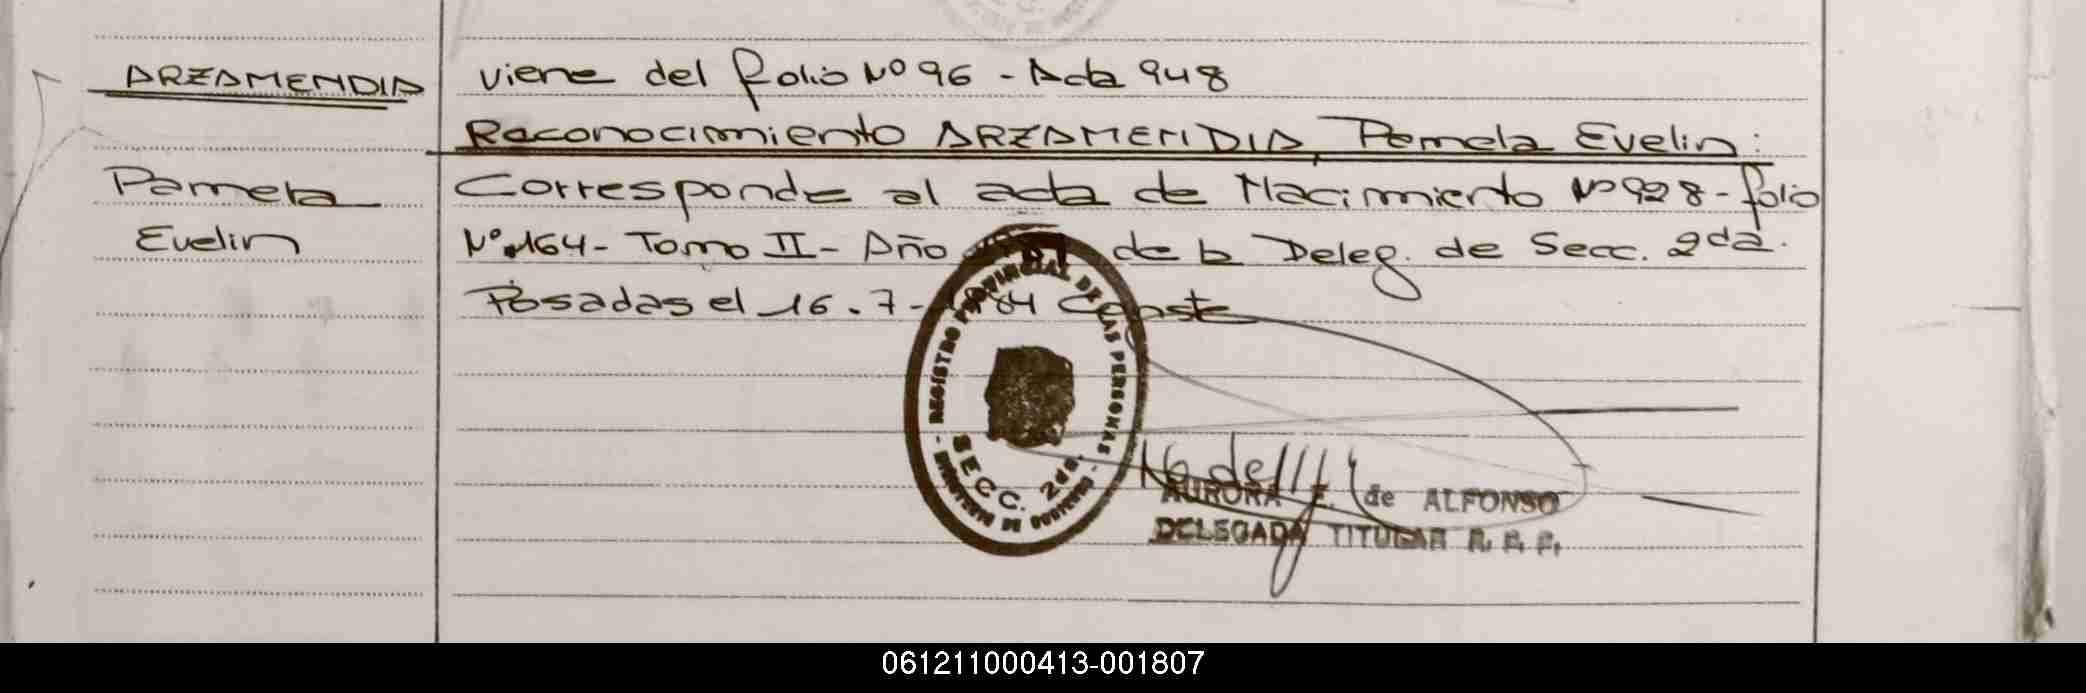 ARZAMENDIA
Pamela
Evelin
viene del folio Nº 96 - Acta 948
Reconocimiento ARZAMENDIA, Pamela Evelin:
Corresponde al acta de Nacimiento Nº 928 - folio
Nº 164 - Tomo II - Año de la Deleg. de Secc. 2da.
Posadas el 16.7-1984 Conste
REGISTRO PROVINCIAL DE LAS PERSONAS
SECC. 2da.
AURORA E. de ALFONSO
DELEGADA TITULAR R. P. P.
061211000413-001807